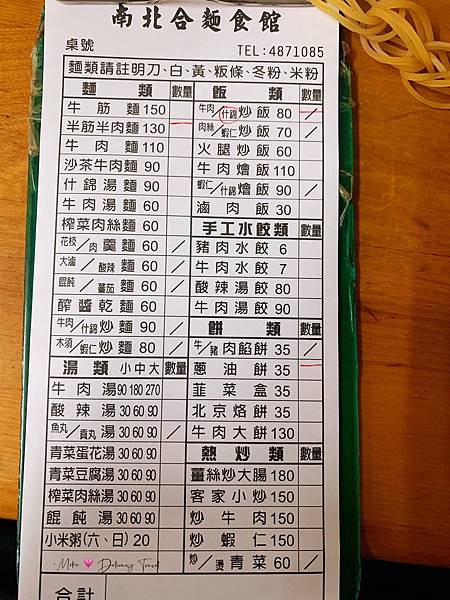 南北合麵食館
桌號 TEL:4871085
麵類請註明刀、白、黃、粄條、冬粉、米粉
麵類 數量
牛筋麵 150
半筋半肉麵 130
牛肉麵 110
沙茶牛肉麵 90
什錦湯麵 90
牛肉湯麵 60
榨菜肉絲麵 60
花枝/肉羹麵 60 /
大滷/酸辣麵 60 /
餛飩/蕃茄麵 60 /
醡醬乾麵 60
牛肉/什錦炒麵 90 /
木須/蝦仁炒麵 80 /
湯類 小中大 數量
牛肉湯 90 180 270
酸辣湯 30 60 90
魚丸/貢丸湯 30 60 90 /
青菜蛋花湯 30 60 90
青菜豆腐湯 30 60 90
榨菜肉絲湯 30 60 90
餛飩湯 30 60 90
小米粥(六、日) 20
飯類 數量
牛肉/什錦炒飯 80 /
肉絲/蝦仁炒飯 70 /
火腿炒飯 60
牛肉燴飯 110
蝦仁/什錦燴飯 90 /
滷肉飯 30
手工水餃類 數量
豬肉水餃 6
牛肉水餃 7
酸辣湯餃 80
牛肉湯餃 90
餅類 數量
牛/豬肉餡餅 35 /
蔥油餅 35
韭菜盒 35
北京烙餅 35
牛肉大餅 130
熱炒類 數量
薑絲炒大腸 180
客家小炒 150
炒牛肉 150
炒蝦仁 150
炒/燙青菜 60 /
合計